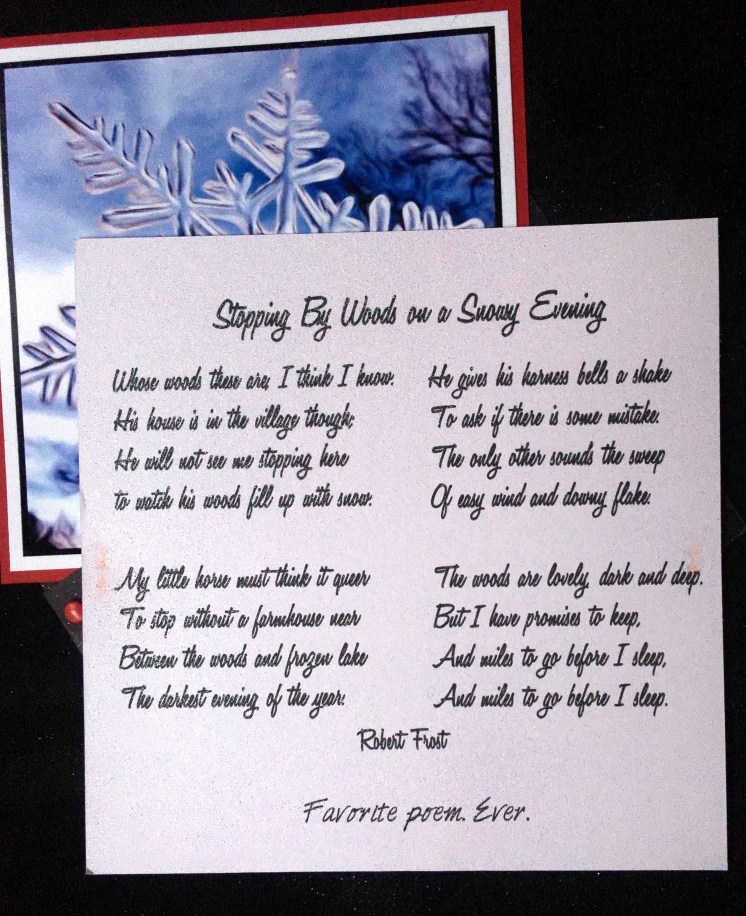 Stopping By Woods on a Snowy Evening
Whose woods these are, I think I know.
His house is in the village though;
He will not see me stopping here
to watch his woods fill up with snow.
My little horse must think it queer
To stop without a farmhouse near
Between the woods and frozen lake
The darkest evening of the year.
He gives his harness bells a shake
To ask if there is some mistake.
The only other sounds the sweep
Of easy wind and downy flake.
The woods are lovely, dark and deep.
But I have promises to keep,
And miles to go before I sleep,
And miles to go before I sleep.
Robert Frost
Favorite poem. Ever.